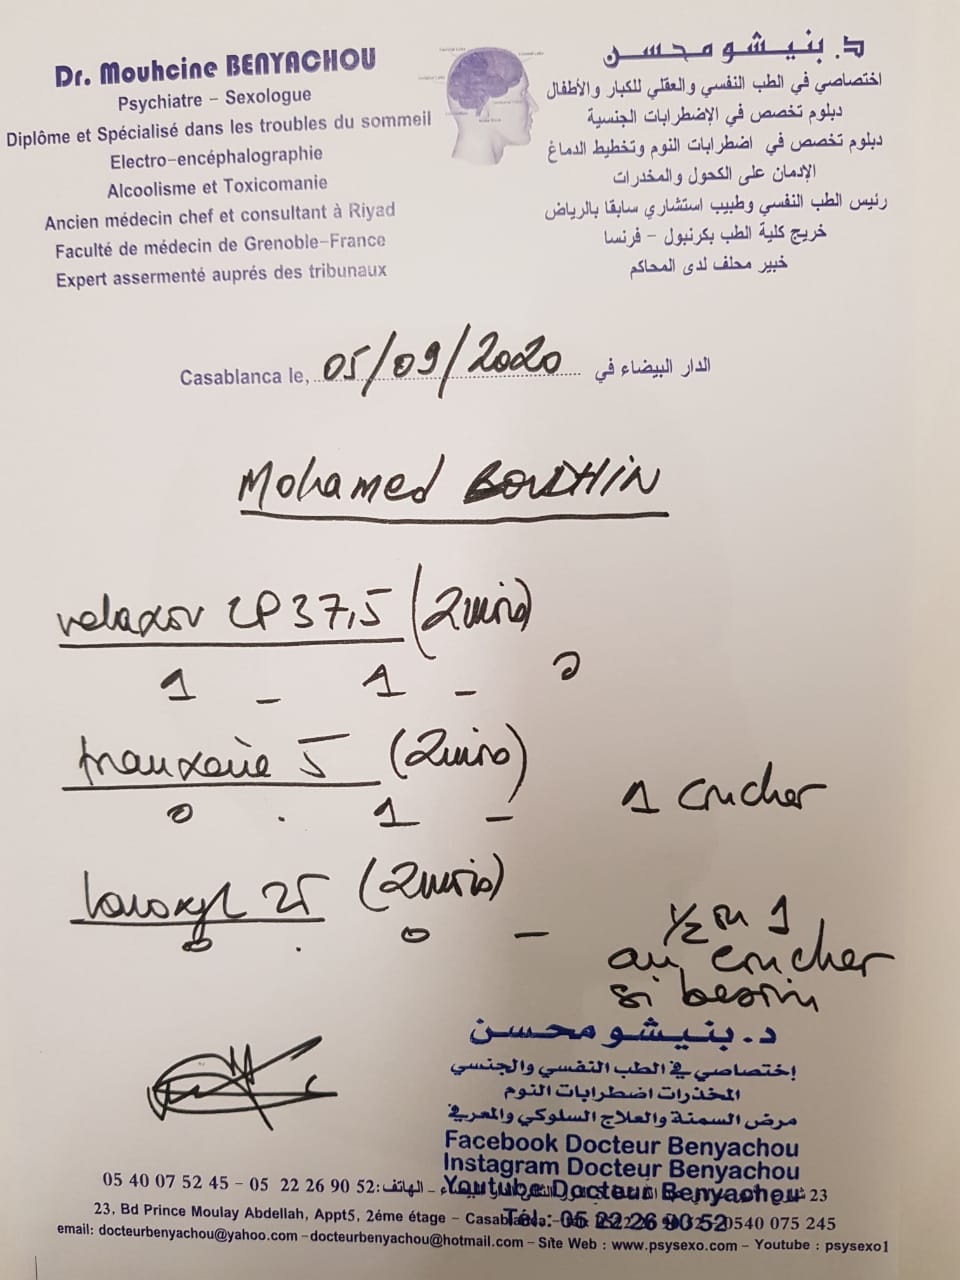 Dr. Mouhcine BENYACHOU
Psychiatre - Sexologue
Diplôme et Spécialisé dans les troubles du sommeil
Electro-encéphalographie
Alcoolisme et Toxicomanie
Ancien médecin chef et consultant à Riyad
Faculté de médecin de Grenoble-France
Expert assermenté auprés des tribunaux
د. بنيشو محسن
اختصاصي في الطب النفسي والعقلي للكبار والأطفال
دبلوم تخصص في الإضطرابات الجنسية
دبلوم تخصص في اضطرابات النوم وتخطيط الدماغ
الإدمان على الكحول والمخدرات
رئيس الطب النفسي وطبيب استشاري سابقا بالرياض
خريج كلية الطب بكرنبول - فرنسا
خبير محلف لدى المحاكم
Casablanca le, 05/09/2020 الدار البيضاء في
Mohamed
velaxor LP 37,5 (2mois)
1 - 1 - 0
tranxène 5 (2mois)
0 . 1 - 1 coucher
laroxyl 25 (2mois)
0 . 0 - 1/2 ou 1
au coucher
si besoin
د. بنيشو محسن
إختصاصي في الطب النفسي والجنسي
المخذرات اضطرابات النوم
مرض السمنة والعلاج السلوكي والمعرفي
Facebook Docteur Benyachou
Instagram Docteur Benyachou
Youtube Docteur Benyachou
Tél.: 05 22 26 90 52
23 الهاتف: 05 22 26 90 52 - 05 40 07 52 45
23, Bd Prince Moulay Abdellah, Appt5, 2éme étage - Casablanca 0540 075 245
email: docteurbenyachou@yahoo.com -docteurbenyachou@hotmail.com - Site Web : www.psysexo.com - Youtube : psysexo1